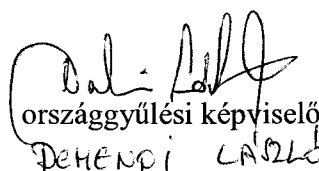 országgyűlési képviselő
DEMENDI LÁSZLÓ